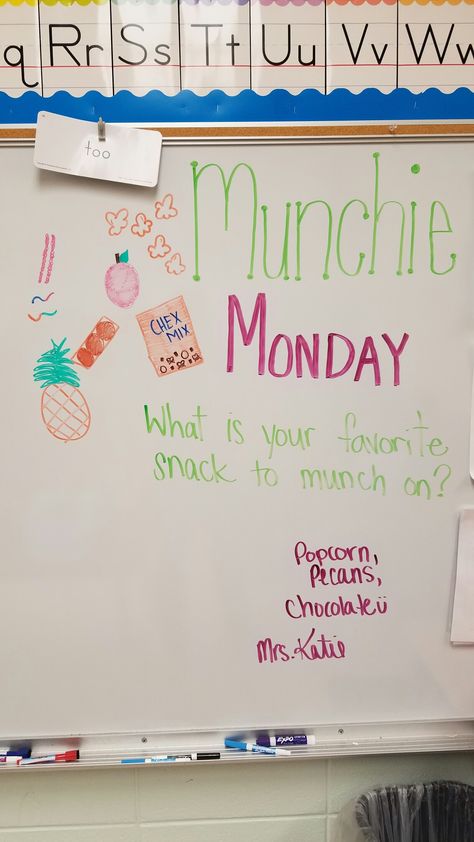 q Rr Ss Tt Uu Vv Ww
too
Munchie
Monday
CHEX
MIX
What is your favorite
snack to munch on?
Popcorn,
Pecans,
Chocolate ü
Mrs. Katie
EXPO